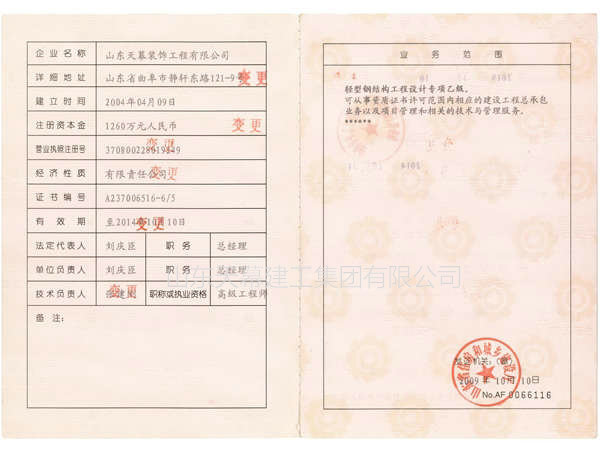 企业名称 山东天幕装饰工程有限公司
详细地址 山东省曲阜市静轩东路121-9 变更
建立时间 2004年04月09日
注册资本金 1260万元人民币 变更
营业执照注册号 变更
经济性质 有限责任公司 变更
证书编号 A237006516-6/5
有效期 至2014年10月10日 变更
法定代表人 刘庆臣 职务 总经理
单位负责人 刘庆臣 职务 总经理
技术负责人 变更 职称或执业资格 高级工程师
备注:
业务范围
轻型钢结构工程设计专项乙级。
可从事资质证书许可范围内相应的建设工程总承包
业务以及项目管理和相关的技术与管理服务。
*******
山东天幕建工集团有限公司
发证机关:(章)
2009年10月10日
No.AF 0066116